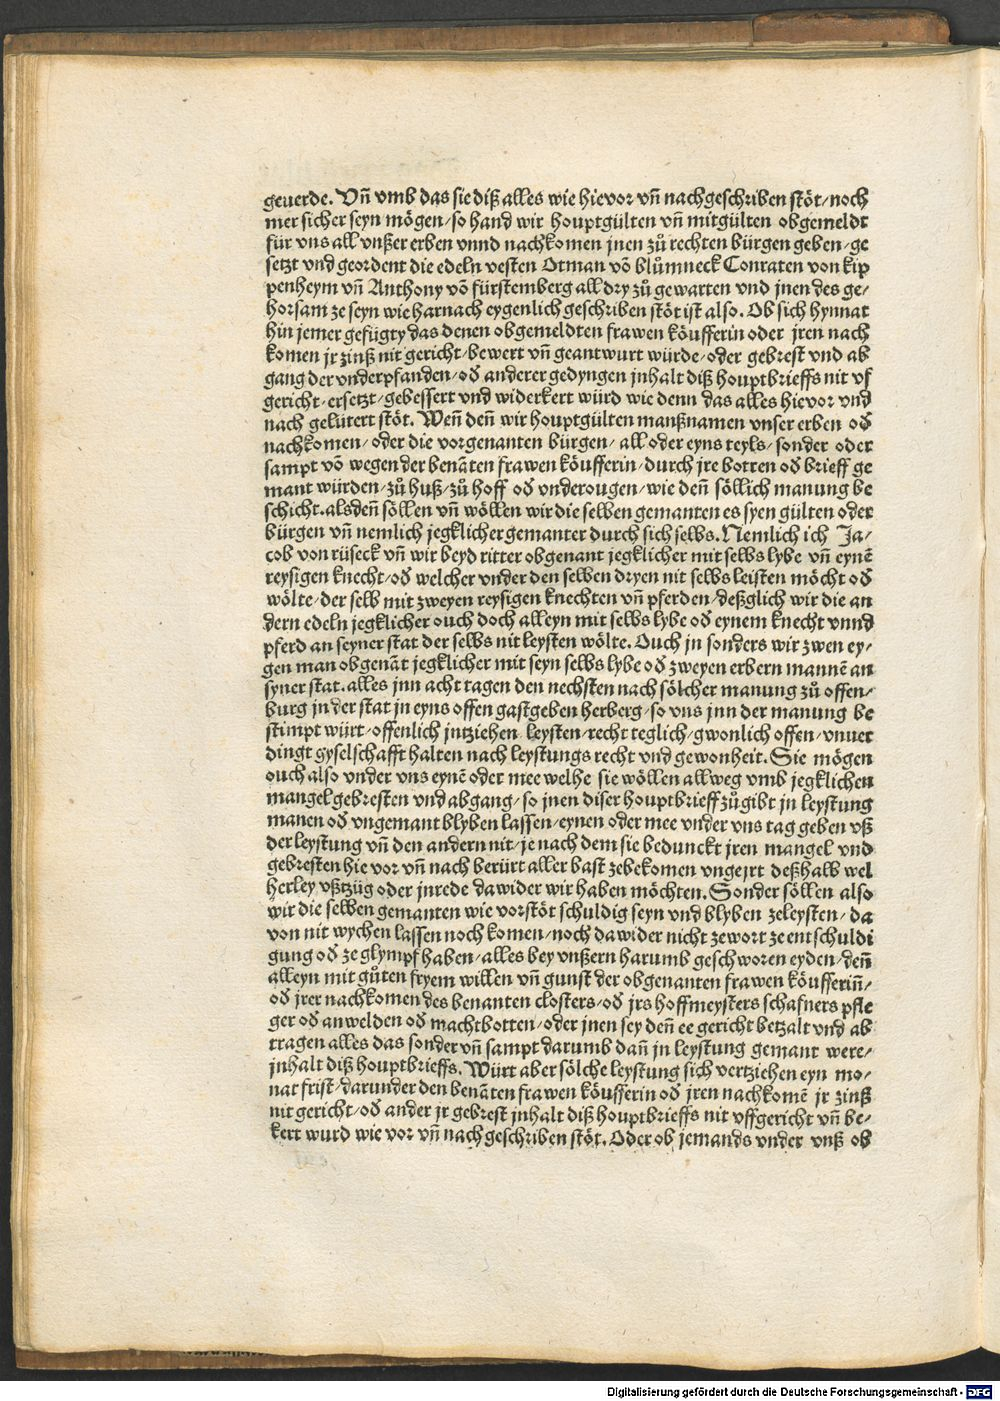 geuerde. Vñ vmb das sie diß alles wie hievor vñ nachgeschriben stöt/noch
mer sicher seyn mögen/so hand wir houptgülten vñ mitgülten obgemeldt
für vns all vnßer erben vnnd nachkomen jnen zů rechten bürgen geben/ge
setzt vnd geordent die edeln vesten Otman võ blůmneck Conraten von kip
penheym vñ Anthony võ fürstemberg all dry zů gewarten vnd jnen des ge/
horsam ze seyn wie harnach eygenlich geschriben stöt ist also. Ob sich hynnat
hin jemer gefügty das denen obgemeldten frawen köufferin oder jren nach
komen jr zinß nit gericht/bewert vñ geantwurt würde/oder gebrest vnd ab
gang der vnderpfanden/oď anderer gedyngen jnhalt diß houptbrieffs nit vf
gericht/ersetzt/gebessert vnd widerkert würd wie denn das alles hievor vnd
nach gelütert stöt. Weñ deñ wir houptgülten manßnamen vnser erben oď
nachkomen/oder die vorgenanten bürgen/all oder eyns teyls/sonder oder
sampt võ wegen der benãten frawen köufferin/durch jre botten oď brieff ge
mant würden/zů huß/zů hoff oď vnderougen/wie deñ söllich manung be
schicht. alsdeñ söllen vñ wöllen wir die selben gemanten es syen gülten oder
bürgen vñ nemlich jegklicher gemanter durch sich selbs. Nemlich ich Ja/
cob von rüseck vñ wir beyd ritter obgenant jegklicher mit selbs lybe vñ eynẽ
reysigen knecht/oď welcher vnder den selben dryen nit selbs leisten möcht oď
wölte/der selb mit zweyen reysigen knechten vñ pferden/deßglich wir die an
dern edeln jegklicher ouch doch alleyn mit selbs lybe oď eynem knecht vnnd
pferd an seyner stat der selbs nit leysten wölte. Ouch jn sonders wir zwen ey/
gen man obgenãt jegklicher mit seyn selbs lybe oď zweyen erbern mannẽ an
syner stat. alles jnn acht tagen den nechsten nach sölcher manung zů offen/
burg jn der stat jn eyns offen gastgeben herberg/so vns jnn der manung be
stimpt würt/offenlich jntziehen leysten/recht teglich/gwonlich offen/vnuer
dingt gyselschafft halten nach leystungs recht vnd gewonheit. Sie mögen
ouch also vnder vns eynẽ oder mee welhe sie wöllen allweg vmb jegklichen
mangel gebresten vnd abgang/so jnen diser houptbrieff zůgibt jn leystung
manen oď vngemant blyben lassen/eynen oder mee vnder vns tag geben vß
der leystung vñ den andern nit/je nach dem sie bedunckt jren mangel vnd
gebresten hie vor vñ nach berürt aller bast zebekomen vngejrt deßhalb wel
herley vßtzüg oder jnrede dawider wir haben möchten. Sonder söllen also
wir die selben gemanten wie vorstöt schuldig seyn vnd blyben zeleysten/da
von nit wychen lassen noch komen/noch dawider nicht ze wort ze entschuldi
gung oď ze glympf haben/alles bey vnßern harumb geschworen eyden/deñ
alleyn mit gůten fryem willen vñ gunst der obgenanten frawen köufferiñ/
oď jrer nachkomen des benanten closters/oď jrs hoffmeysters schafners pfle
ger oď anwelden oď machtbotten/oder jnen sey deñ ee gericht betzalt vnd ab
tragen alles das sonder vñ sampt darumb dañ jn leystung gemant were/
jnhalt diß houptbrieffs. Würt aber sölche leystung sich vertziehen eyn mo/
nat frist/darunder den benãten frawen köufferin oď jren nachkomẽ jr zinß
nit gericht/oď ander jr gebrest jnhalt diß houptbrieffs nit vffgericht vñ be/
kert wurd wie vor vñ nachgeschriben stöt. Oder ob jemands vnder vnß ob
Digitalisierung gefördert durch die Deutsche Forschungsgemeinschaft - DFG